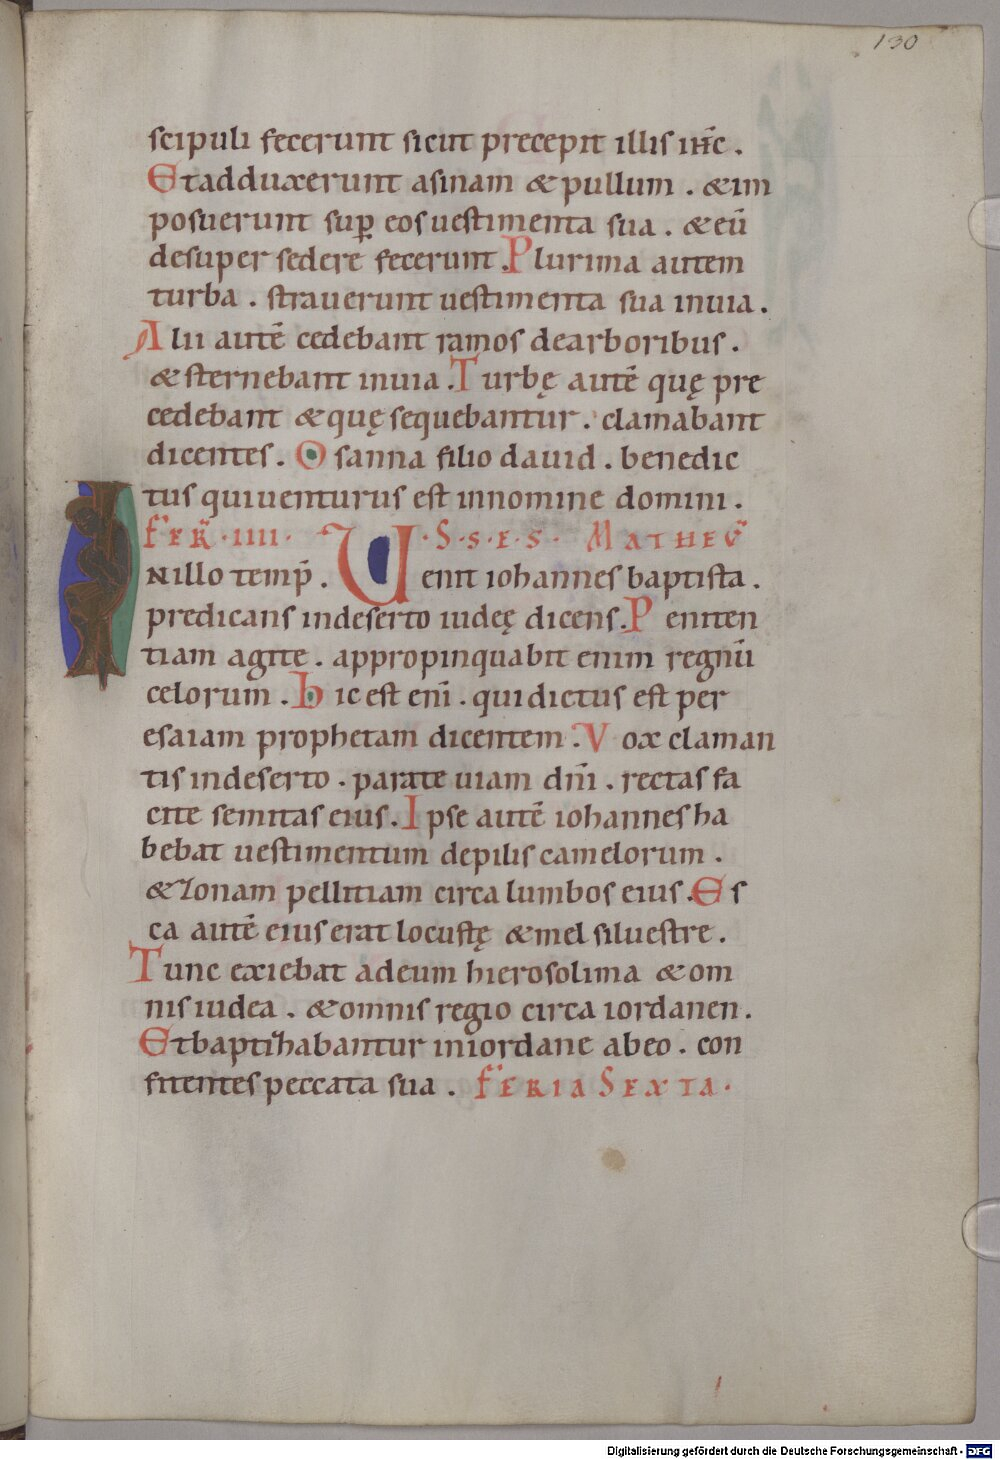 130
scipuli fecerunt sicut precepit illis ihc̄.
Et adduxerunt asinam & pullum. & im
posuerunt sup̱ eos uestimenta sua. & eū
desuper sedere fecerunt. Plurima autem
turba. strauerunt uestimenta sua in uia.
Alii autē cedebant ramos de arboribus.
& sternebant in uia. Turbę autē quę pre
cedebant & quę sequebantur. clamabant
dicentes. Osanna filio dauid. benedic
tus qui uenturus est in nomine domini.
FER̄. IIII. S. S. E. S. MATHEV̄
INillo temp̄. Uenit iohannes baptista.
predicans in deserto iudeę dicens. Peniten
tiam agite. appropinquabit enim regnū
celorum. hic est eni̅. qui dictus est per
esaiam prophetam dicentem. Vox claman
tis in deserto. parate uiam dn̄i. rectas fa
cite semitas eius. Ipse autē iohannes ha
bebat uestimentum de pilis camelorum.
& zonam pellitiam circa lumbos eius. Es
ca autē eius erat locustę & mel siluestre.
Tunc exiebat ad eum hierosolima & om
nis iudea. & omnis regio circa iordanen.
Et baptizabantur in iordane ab eo. con
fitentes peccata sua. FERIA SEXTA.
Digitalisierung gefördert durch die Deutsche Forschungsgemeinschaft - DFG